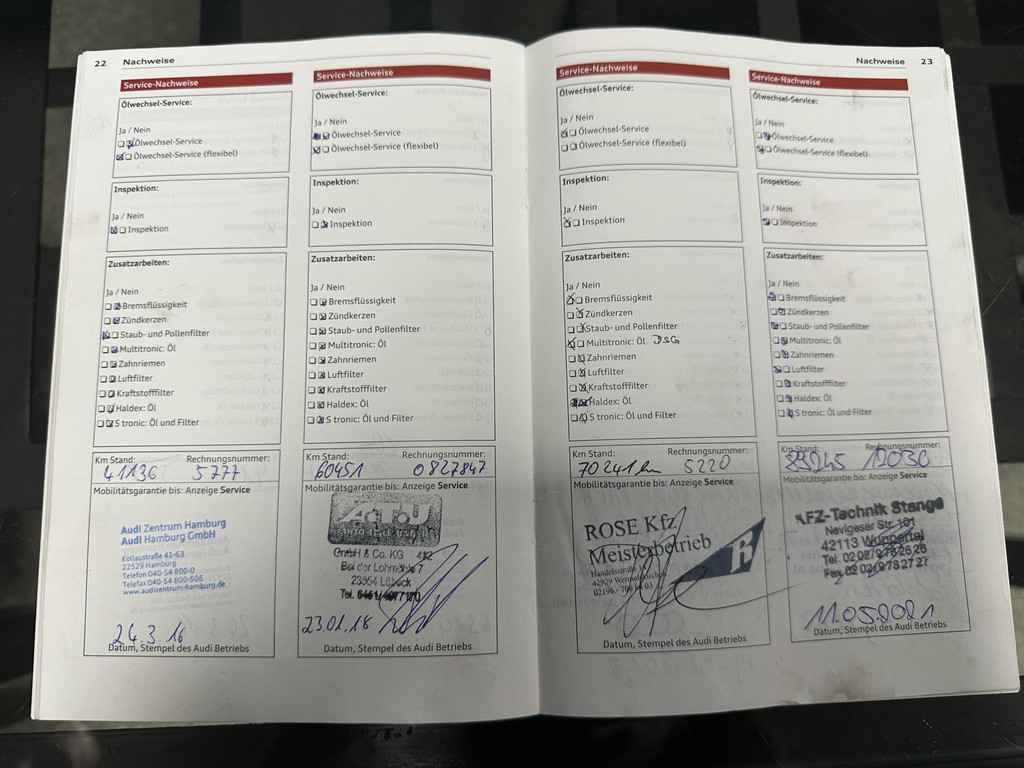 22 Nachweise
Service-Nachweise
Ölwechsel-Service:
Ja / Nein
Ölwechsel-Service
Ölwechsel-Service (flexibel)
Inspektion:
Ja / Nein
Inspektion
Zusatzarbeiten:
Ja / Nein
Bremsflüssigkeit
Zündkerzen
Staub- und Pollenfilter
Multitronic: Öl
Zahnriemen
Luftfilter
Kraftstofffilter
Haldex: Öl
S tronic: Öl und Filter
Km Stand: Rechnungsnummer:
41136 5777
Mobilitätsgarantie bis: Anzeige Service
Audi Zentrum Hamburg
Audi Hamburg GmbH
Kollaustraße 41-63
22529 Hamburg
Telefon 040-54 800-0
Telefax 040-54 800-506
www.audizentrum-hamburg.de
24.3.16
Datum, Stempel des Audi Betriebs
Service-Nachweise
Ölwechsel-Service:
Ja / Nein
Ölwechsel-Service
Ölwechsel-Service (flexibel)
Inspektion:
Ja / Nein
Inspektion
Zusatzarbeiten:
Ja / Nein
Bremsflüssigkeit
Zündkerzen
Staub- und Pollenfilter
Multitronic: Öl
Zahnriemen
Luftfilter
Kraftstofffilter
Haldex: Öl
S tronic: Öl und Filter
Km Stand: Rechnungsnummer:
60451 0827847
Mobilitätsgarantie bis: Anzeige Service
A.T.U
GmbH & Co. KG 432
Bei der Lohmühle 7
23554 Lübeck
Tel.
23.01.18
Datum, Stempel des Audi Betriebs
Nachweise 23
Service-Nachweise
Ölwechsel-Service:
Ja / Nein
Ölwechsel-Service
Ölwechsel-Service (flexibel)
Inspektion:
Ja / Nein
Inspektion
Zusatzarbeiten:
Ja / Nein
Bremsflüssigkeit
Zündkerzen
Staub- und Pollenfilter
Multitronic: Öl DSG
Zahnriemen
Luftfilter
Kraftstofffilter
Haldex: Öl
S tronic: Öl und Filter
Km Stand: Rechnungsnummer:
70241 km 5220
Mobilitätsgarantie bis: Anzeige Service
ROSE Kfz
Meisterbetrieb
R
42929 Wermelskirchen
Datum, Stempel des Audi Betriebs
Service-Nachweise
Ölwechsel-Service:
Ja / Nein
Ölwechsel-Service
Ölwechsel-Service (flexibel)
Inspektion:
Ja / Nein
Inspektion
Zusatzarbeiten:
Ja / Nein
Bremsflüssigkeit
Zündkerzen
Staub- und Pollenfilter
Multitronic: Öl
Zahnriemen
Luftfilter
Kraftstofffilter
Haldex: Öl
S tronic: Öl und Filter
Km Stand: Rechnungsnummer:
Mobilitätsgarantie bis: Anzeige Service
KFZ-Technik Stange
Nevigeser Str. 101
42113 Wuppertal
Tel.
Fax
11.05.2021
Datum, Stempel des Audi Betriebs